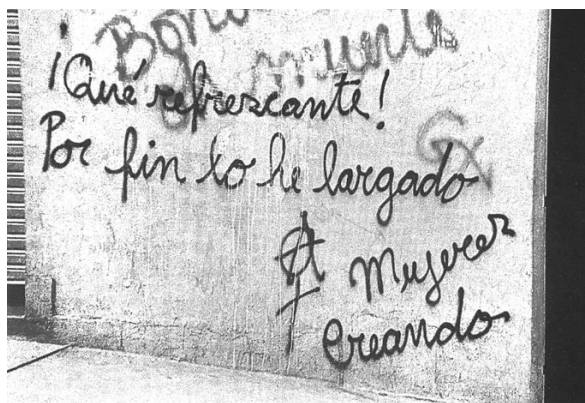 muerte
¡Qué refrescante!
Por fin lo he largado
Mujeres
Creando